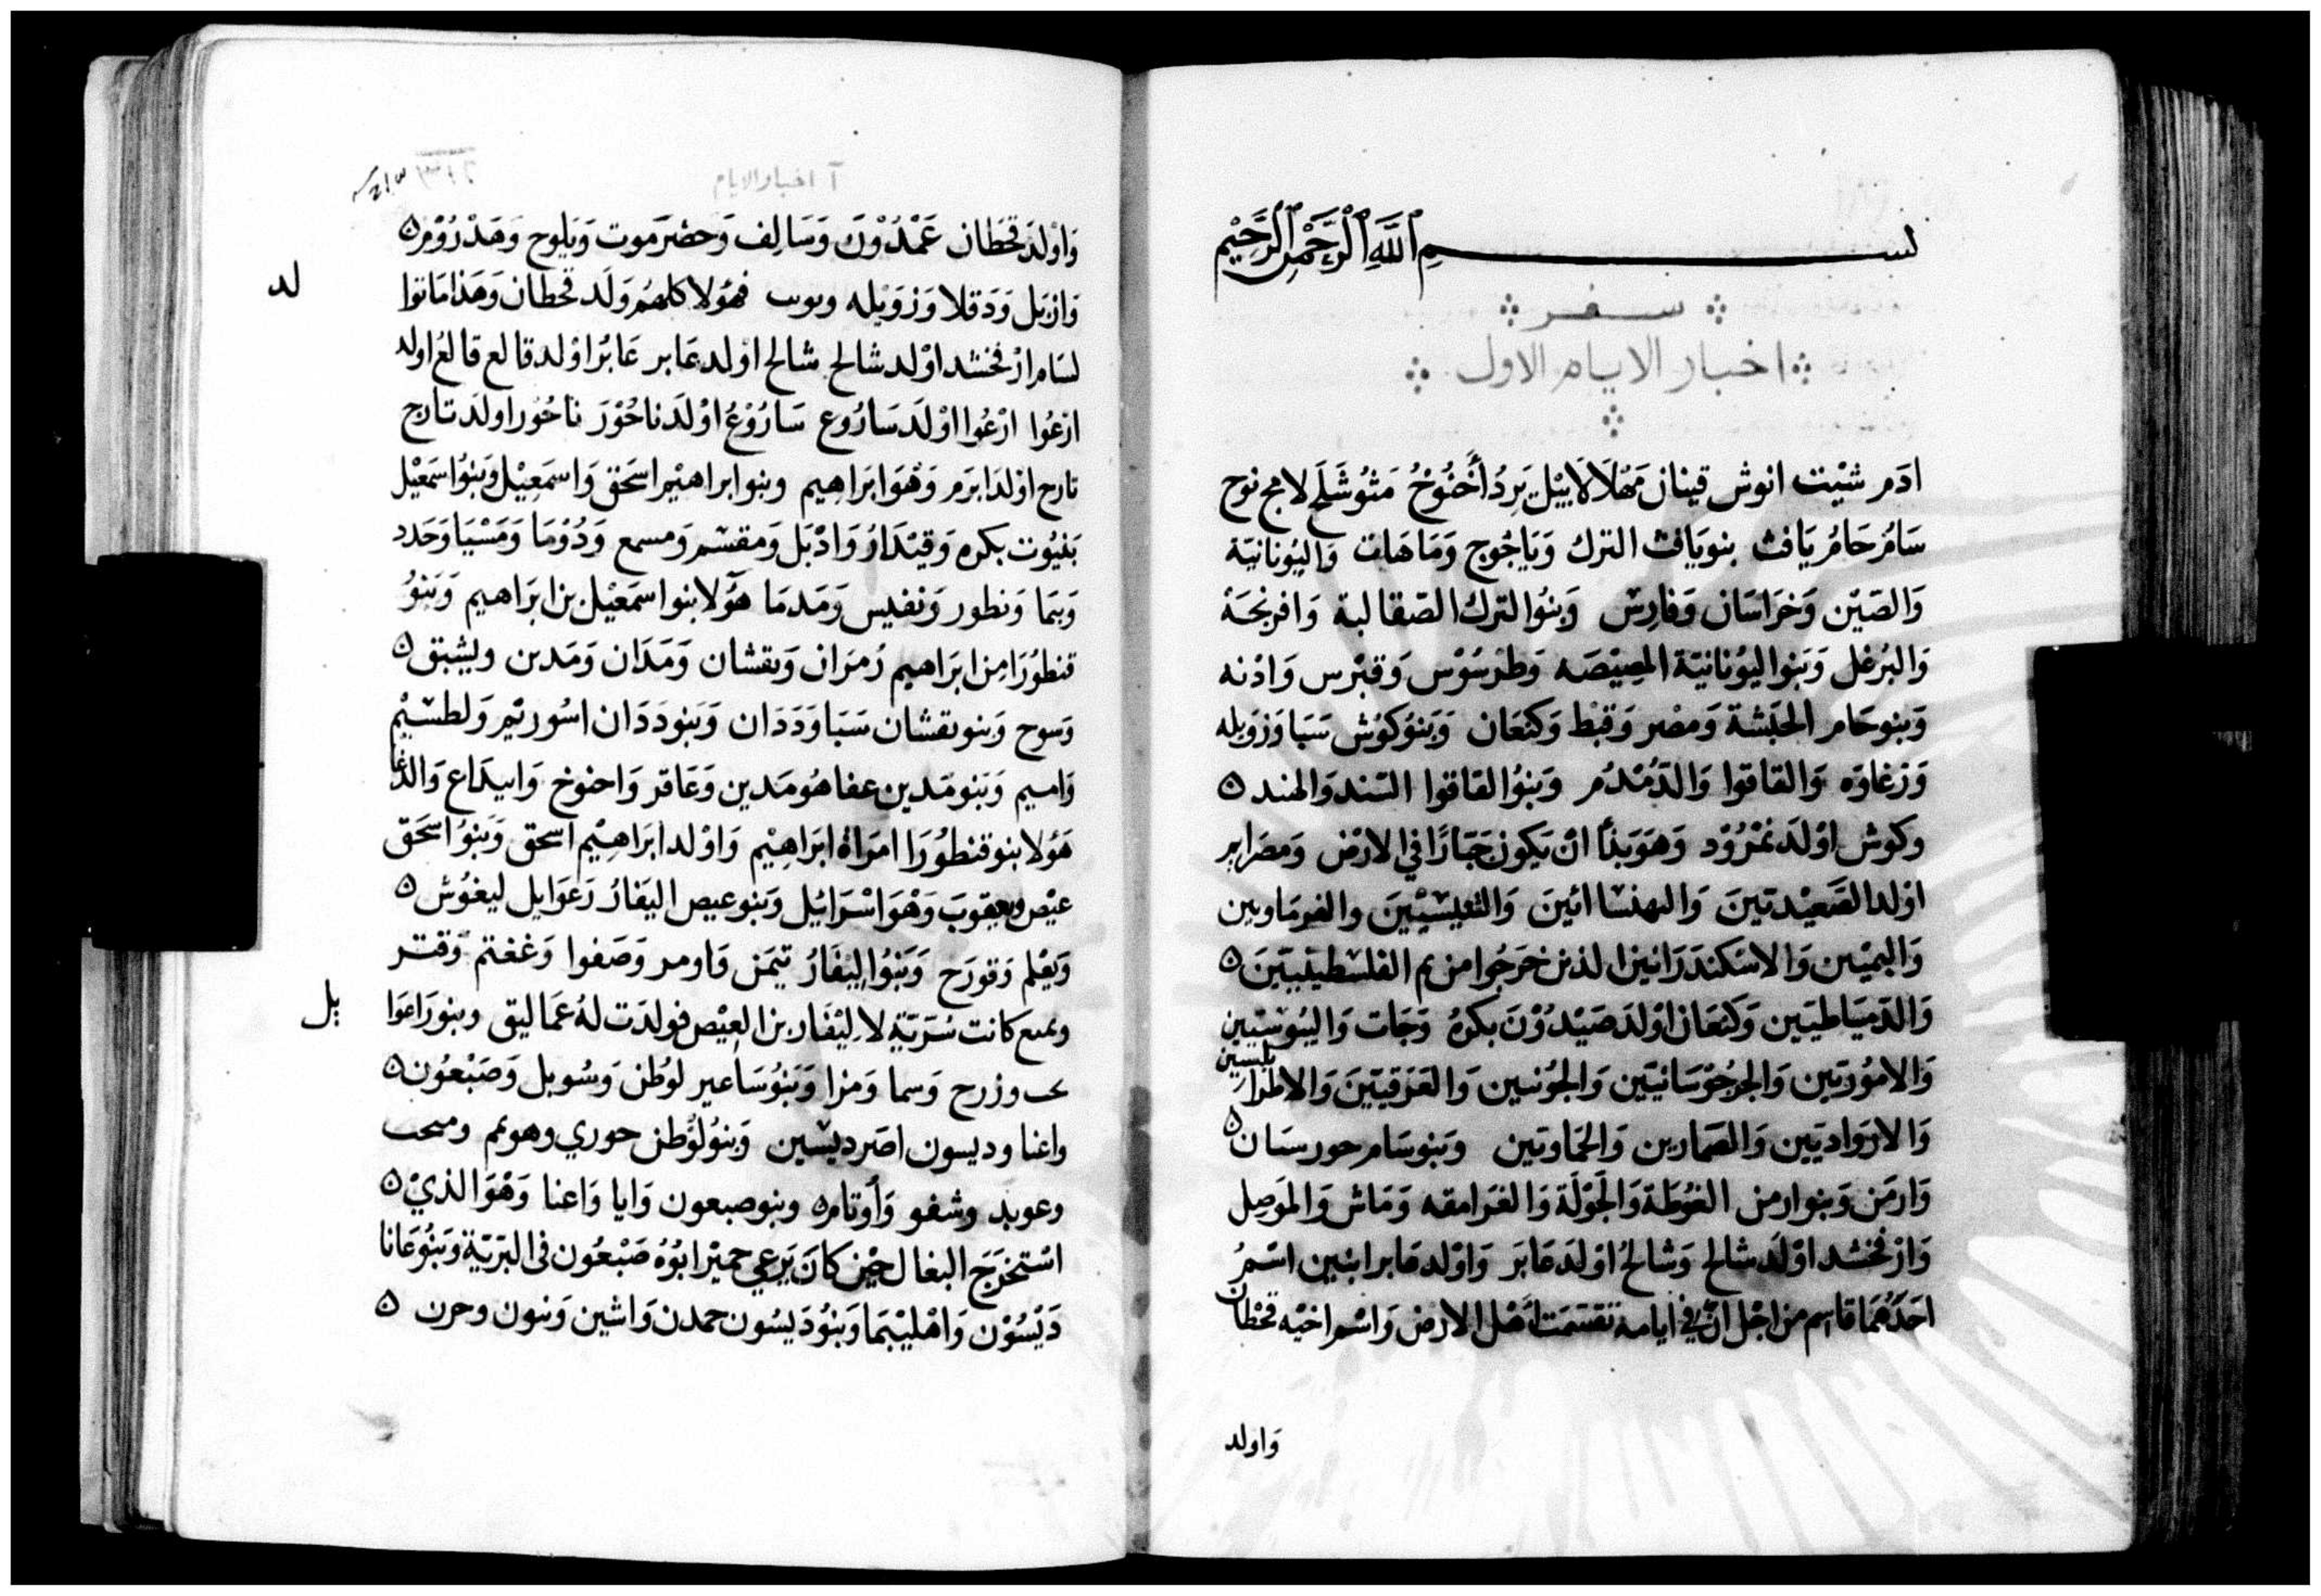 بسم الله الرحمن الرحيم
سفر
اخبار الايام الاول
ادَم شيْت انوش قينان مَهْلَالَاييْل يَردُ أخنُوخُ مَثُوشَلَح لامج نوح
سَامُ حَامُ يَافث بنو يَافث الترك وَيَاجُوج وَمَاهَات وَاليُونانيّة
وَالصّين وَخرَاسَان وَفارِسْ وَبنُوا لترك الصّقالبة وَافرنجَة
وَالبُرغل وَبَنوا اليُونانيّة المِصِيْصَه وَطرْسُوْس وَقبْرس وَادْنه
وَبنو حَام الحَبَشة وَمصْر وَقبْط وَكنعَان وَبَنوُ كوُش سَبَا وَزوَيله
وَزغاوَه وَالقاقوا وَالدّمْدُم وَبنوُا لقَاقوا السّند وَالهند
وكوش اوْلدَ نمْرُوْد وَهوَ بَدَا انْ يَكون جَبّارًا في الارْض وَمصَرايم
اوْلد الصّعيْديّينَ وَالبهنسَاائينَ وَالتّنيْسيّيْنَ والفرمَاويين
وَاليمَنيّين وَالاسْكندَرَانيّن الذين خرَجُوا من ثم الفلسْطيّيبّينَ
وَالدّميَاطيّين وَكنعَان اوْلدَ صَيْدُوْن بكرهُ وَحَات وَاليبُوسيّين
وَالامُوْريّين وَالجرجُوْسَانيّين وَالجُونيين وَالعَرَقيّينَ وَالاطرابلسيين
وَالاروَاديّين وَالصّمارين وَالحَمَاويّين وَبنو سَام حورسَان
وَارمَن وَبنوا رمن الغُوطَة وَالجَوْلَة وَالغرَامقه وَمَاش وَالموَصِل
وَارْفخشد اوْلدَ شالح وَشالحُ اوْلدَ عَابَر وَاوْلد عَابر ابْنين اسْمُ
احَدهُمَا قاسِم من اجْل انّ في ايامه تقسّمَت اهْل الارْض وَاسْم اخيْه قحْطان
وَاولد
آ اخبار الايام
٣١٢
وَاوْلدَ قحَطان عَمْدُوْن وَسَالِف وَحضرَموت وَيَلوح وَهَدْرُوْم
وَازبَل وَدَقلا وَزوَيْله ويوب فهٰؤلا كلهُم وَلَد قحطان وَهَذا مَا توا
لد
لسَام ارْفخشد اوْلد شالح شالح اوْلد عَابر عَابَر اوْلد قالع قالعُ اولد
ارعُوا ارْعُوا اوْلَدَ سَارُوع سَارُوْعُ اوْلَدَ ناحُوْرَ ناحُوْر اولَدَ تارح
تارح اوْلدَ ابَرَم وَهْوَ ابَرَاهِيم وبنو ابراهيْم اسحَق وَاسمَعِيْل وَبنوُ اسمَعيْل
بَنيُوت بكره وَقيْدَارُ وَادْبَل وَمقسَم وَمسمع وَدُوْمَا وَمَسْيَا وَحَدد
وَيمَا وَنطور وَنفيس وَمَدمَا هؤلا بنوا سمَعيْل بن ابَرَاهيم وَبَنوُ
قنطُوْرَا مِن ابَرَاهيم زمرَان وَيقشان وَمَدَان وَمَدين ويشبَق
وَسوح وَبنو يقشان سَبَا وَدَدَان وَبَنو دَدَان اسُوريّم وَلطسيْم
وَاميم وَبَنو مَدين عفا هُو مَدين وَعَاقر وَاحنوخ وَابيدَاع وَالدّغا
هَؤلا بنو قنطوُرَا امرَاة ابَرَاهِيْم وَاوْلد ابَرَاهِيْم اسحق وَبنوُ اسْحَق
عيْص وَيعقوبَ وَهْوَ اسْرَائيْل وَبنو عيص اليَفازُ رَعوَايل ليغوُش
وَيَعْلم وَقورَح وَبَنُوا ليْفَازُ تيمَن وَاومر وَصَفوا وَغغتم وَقنز
وتمنع كانت سُرَيّة لاليْفَاز بن العيْص فولدَت لهُ عَماليق وبنو رَاعوَا
يل
وزرح وَسما وَمزا وَبَنوُ سَاعير لوُطن وَسُوبل وَصَبْعُون
واعنا وديسون اصَر ديسَين وَبنوُ لوُطن حوري وهومم ومنحت
وعوبد وشفو وَأوتام وبنو صبعون وَايا وَاعنا وَهْوَا لذيْ
اسْتخرَجَ البغال حيْن كانَ يَرعي حميْر ابوُهُ صَبْعُون في البَرّيّة وَبنُوُ عَانا
دَيْسُوْن وَاهْليْبَمَا وَبنُوُ دَيسُون حمدن وَاشبن وَ وحرن